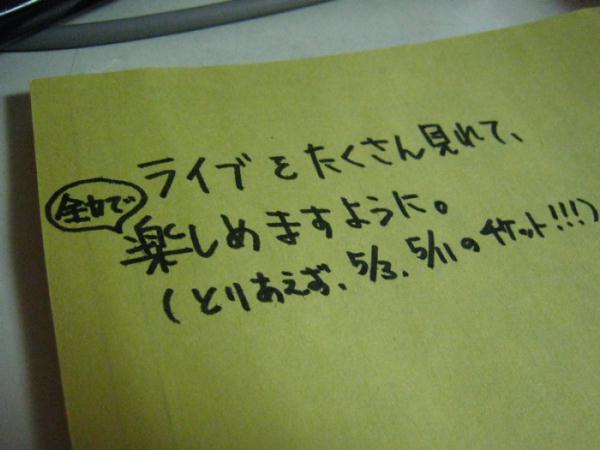 ライブをたくさん見れて、
全力で
楽しめますように。
(とりあえず、5/3、5/11のチケット!!!)